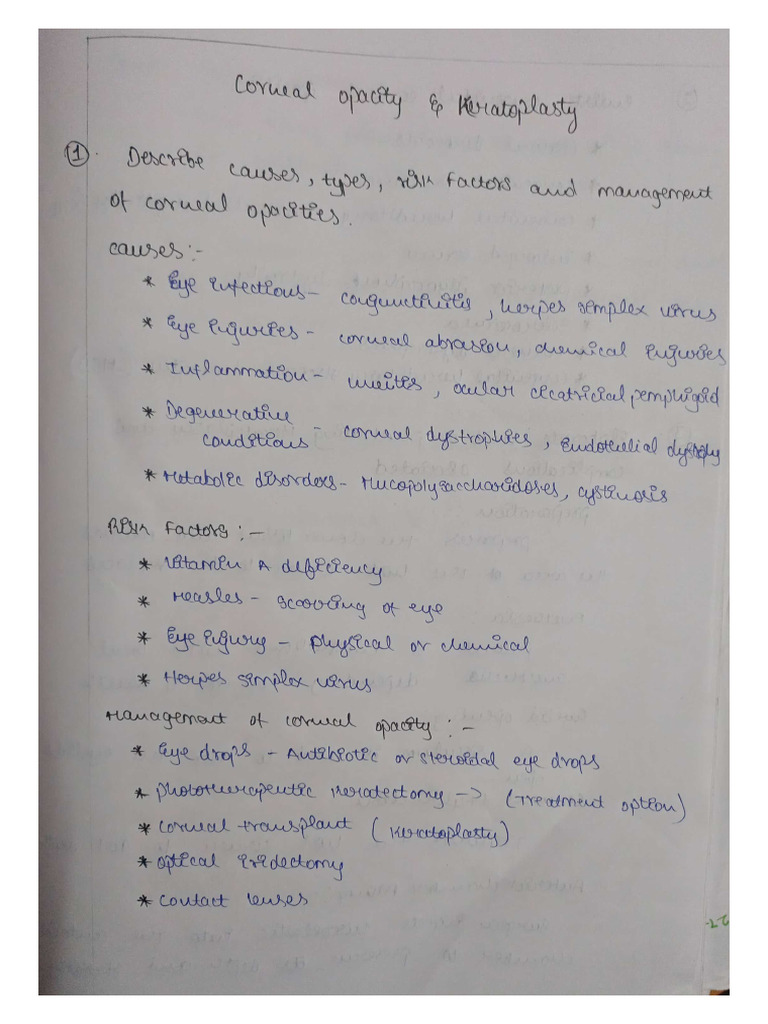 Corneal opacity & Keratoplasty
① . Describe causes, types, risk factors and management
of corneal opacities.
causes :-
* Eye infections - conjunctivitis, herpes simplex virus
* Eye injuries - corneal abrasion, chemical injuries
* Inflammation - uveitis, ocular cicatricial pemphigoid
* Degenerative
conditions - corneal dystrophies, Endothelial dystrophy
* Metabolic disorders - Mucopolysaccharidoses, cystinosis
Risk factors :-
* Vitamin A deficiency
* Measles - scarring of eye
* Eye injury - physical or chemical
* Herpes simplex virus
Management of corneal opacity :-
* Eye drops - Antibiotic or steroidal eye drops
* phototherapeutic keratectomy -> (Treatment option)
* corneal transplant (Keratoplasty)
* optical iridectomy
* contact lenses